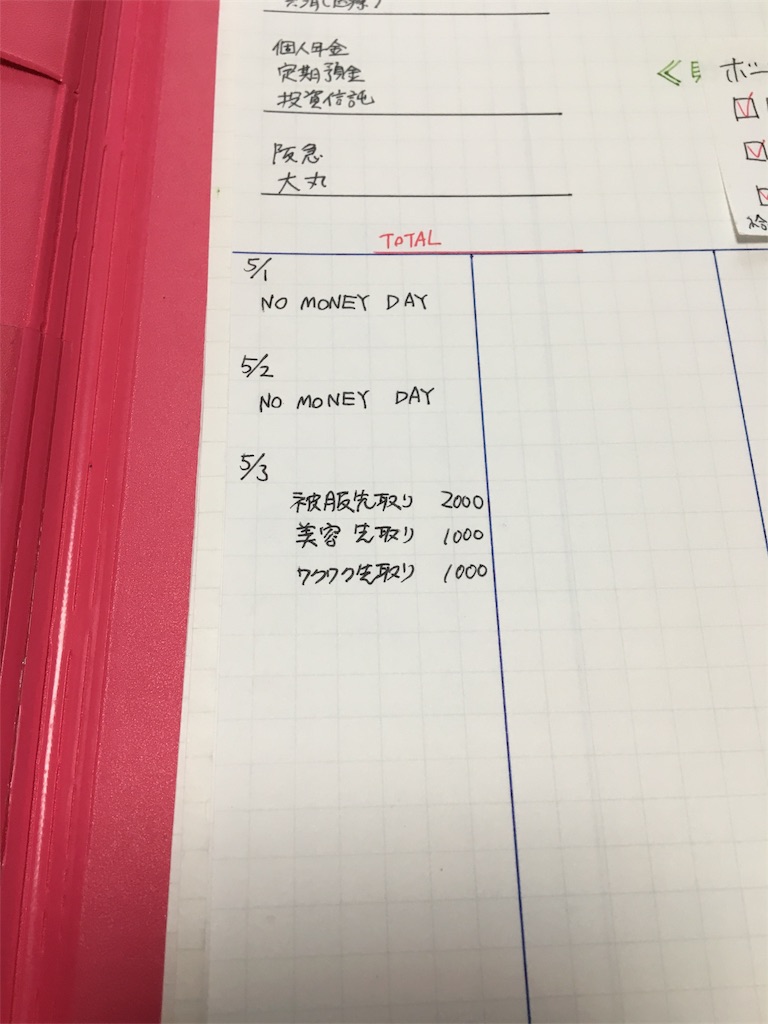 個人年金
定期預金
投資信託
阪急
大丸
TOTAL
5/1
NO MONEY DAY
5/2
NO MONEY DAY
5/3
被服先取り 2000
美容先取り 1000
ワクワク先取り 1000